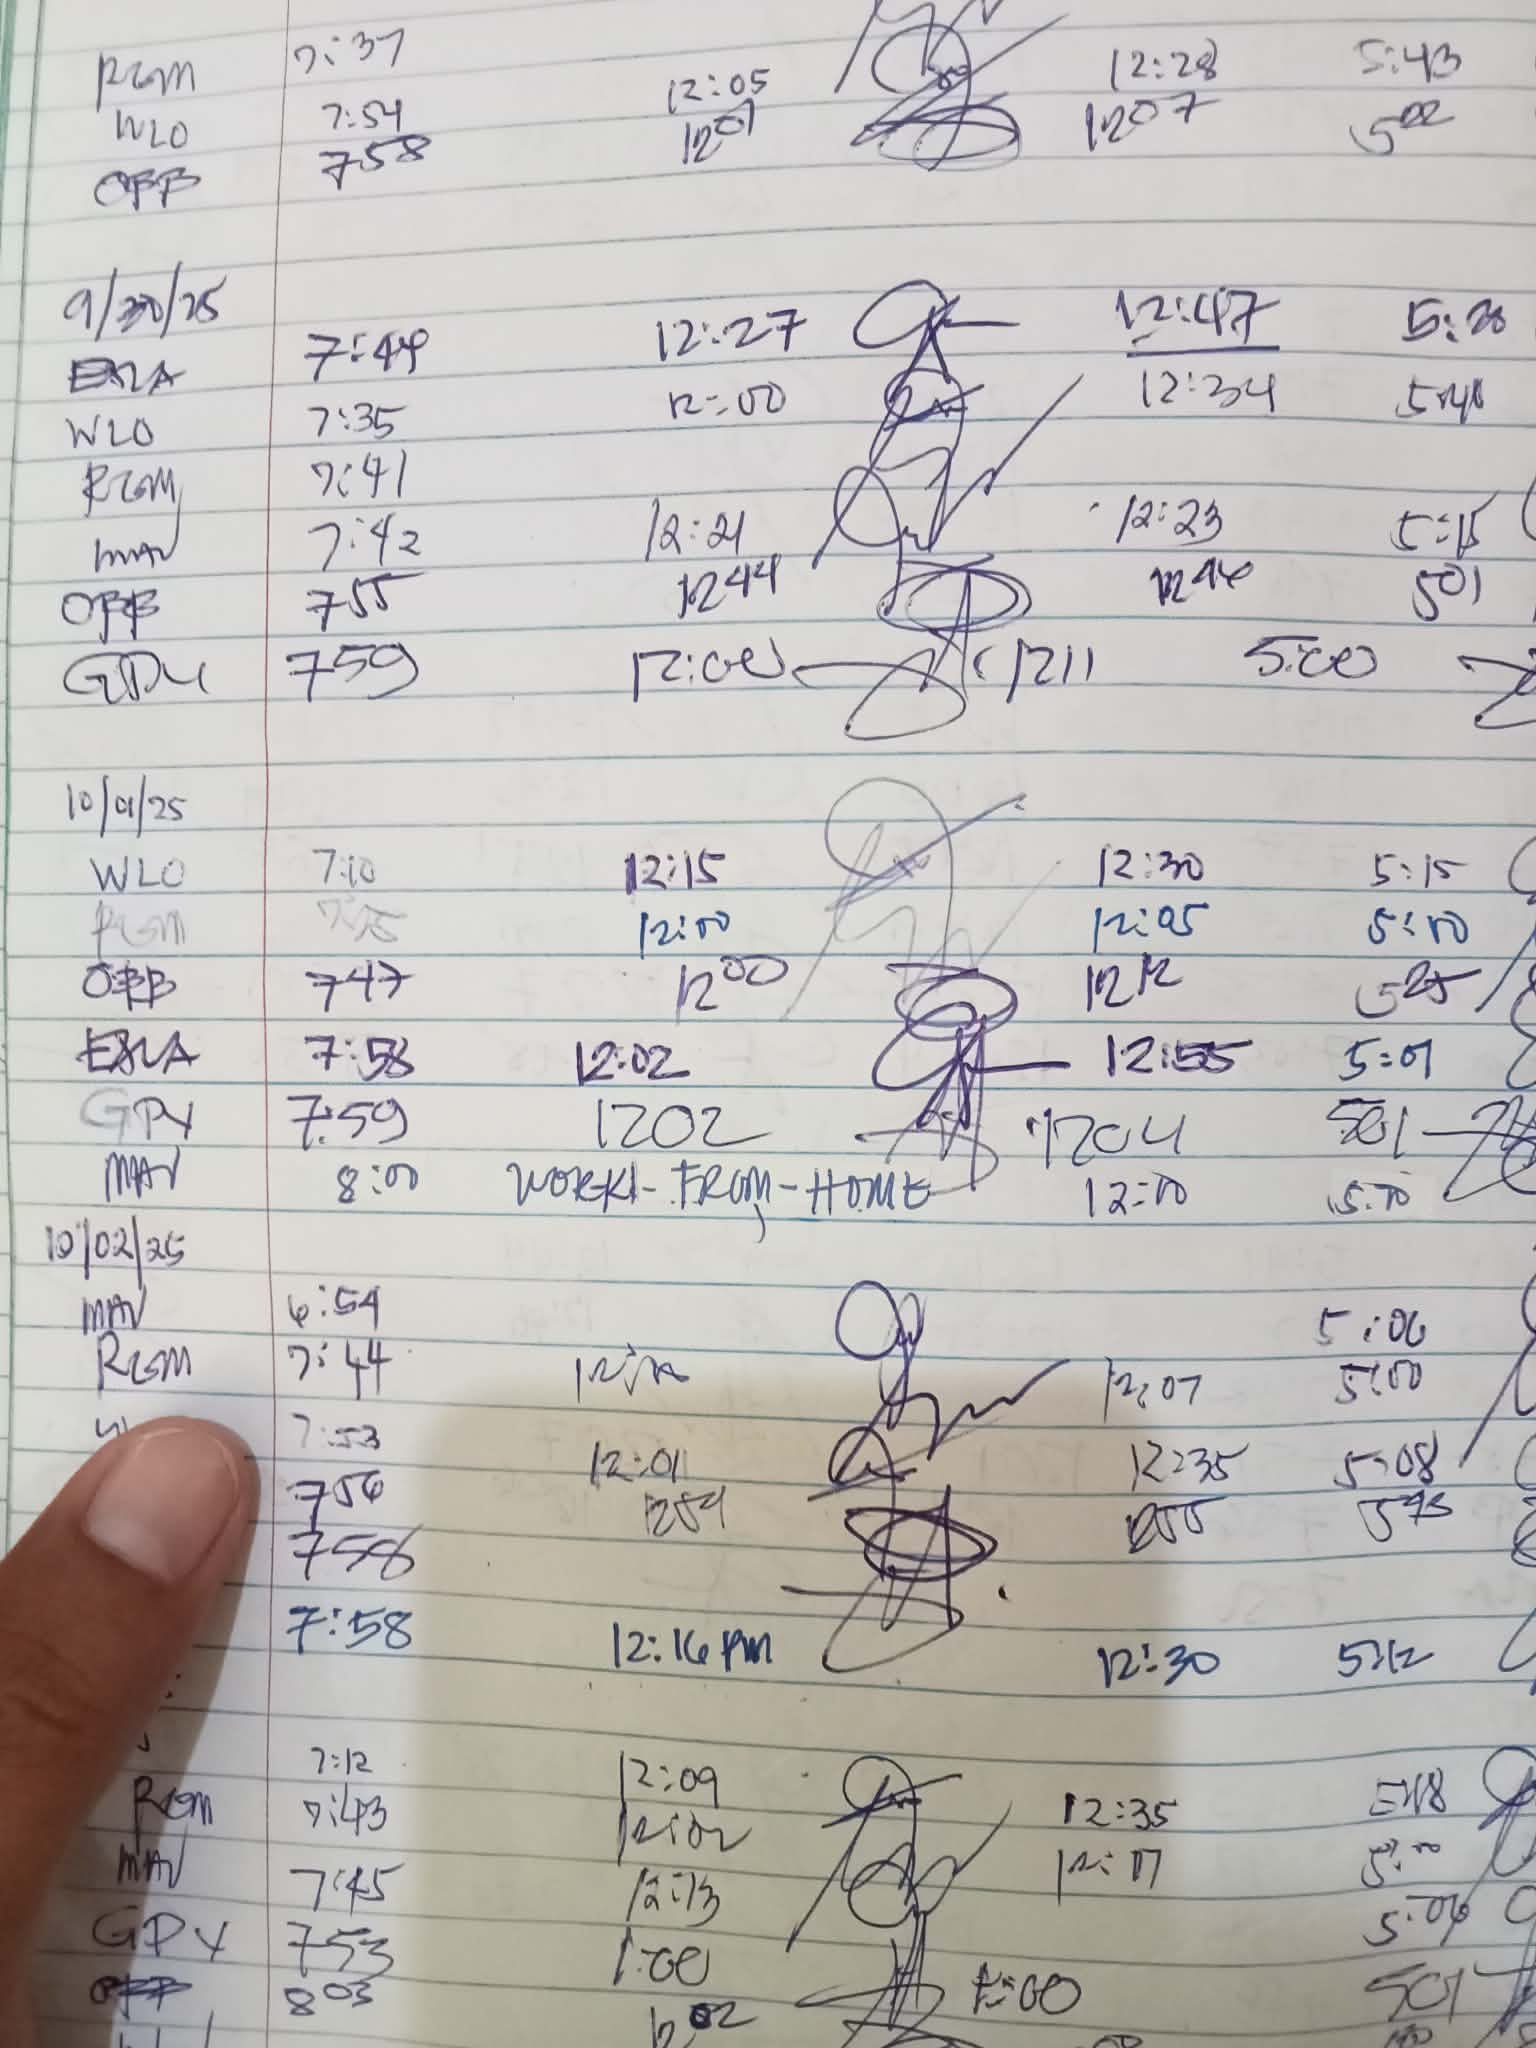 RGM 7:37
WLO 7:54 12:05 12:28 5:43
OBB 7 58 12 01 12 07 5 02
9/30/25
ESLA 7:49 12:27 12:47 5:20
WLO 7:35 12:00 12:34 5:40
RGM 7:41
MAV 7:42 12:21 12:23 5:15
OBB 7 55 12 44 12 46 5 01
GPY 7 59 12:00 1211 5:00
10/01/25
WLO 7:10 12:15 12:30 5:15
RGM 12:00 12:05 5:00
OBB 7 47 12 00 12 12 5 25
ESLA 7:58 12:02 12:55 5:01
GPY 7:59 1202 1204 501
MAV 8:00 WORK-FROM-HOME 12:00 5:00
10/02/25
MAV 6:54 5:06
RGM 7:44 12:07 5:00
7:53 12:01 12:35 5:08
7 56 12 54 12 55
7 58
7:58 12:16 PM 12:30 5:12
7:12 12:09 12:35
RGM 7:43 12:02 12:17 5:00
MAV 7:45 12:13 5:06
GPY 7 53 1:00 1:00 501
8 03 12 02